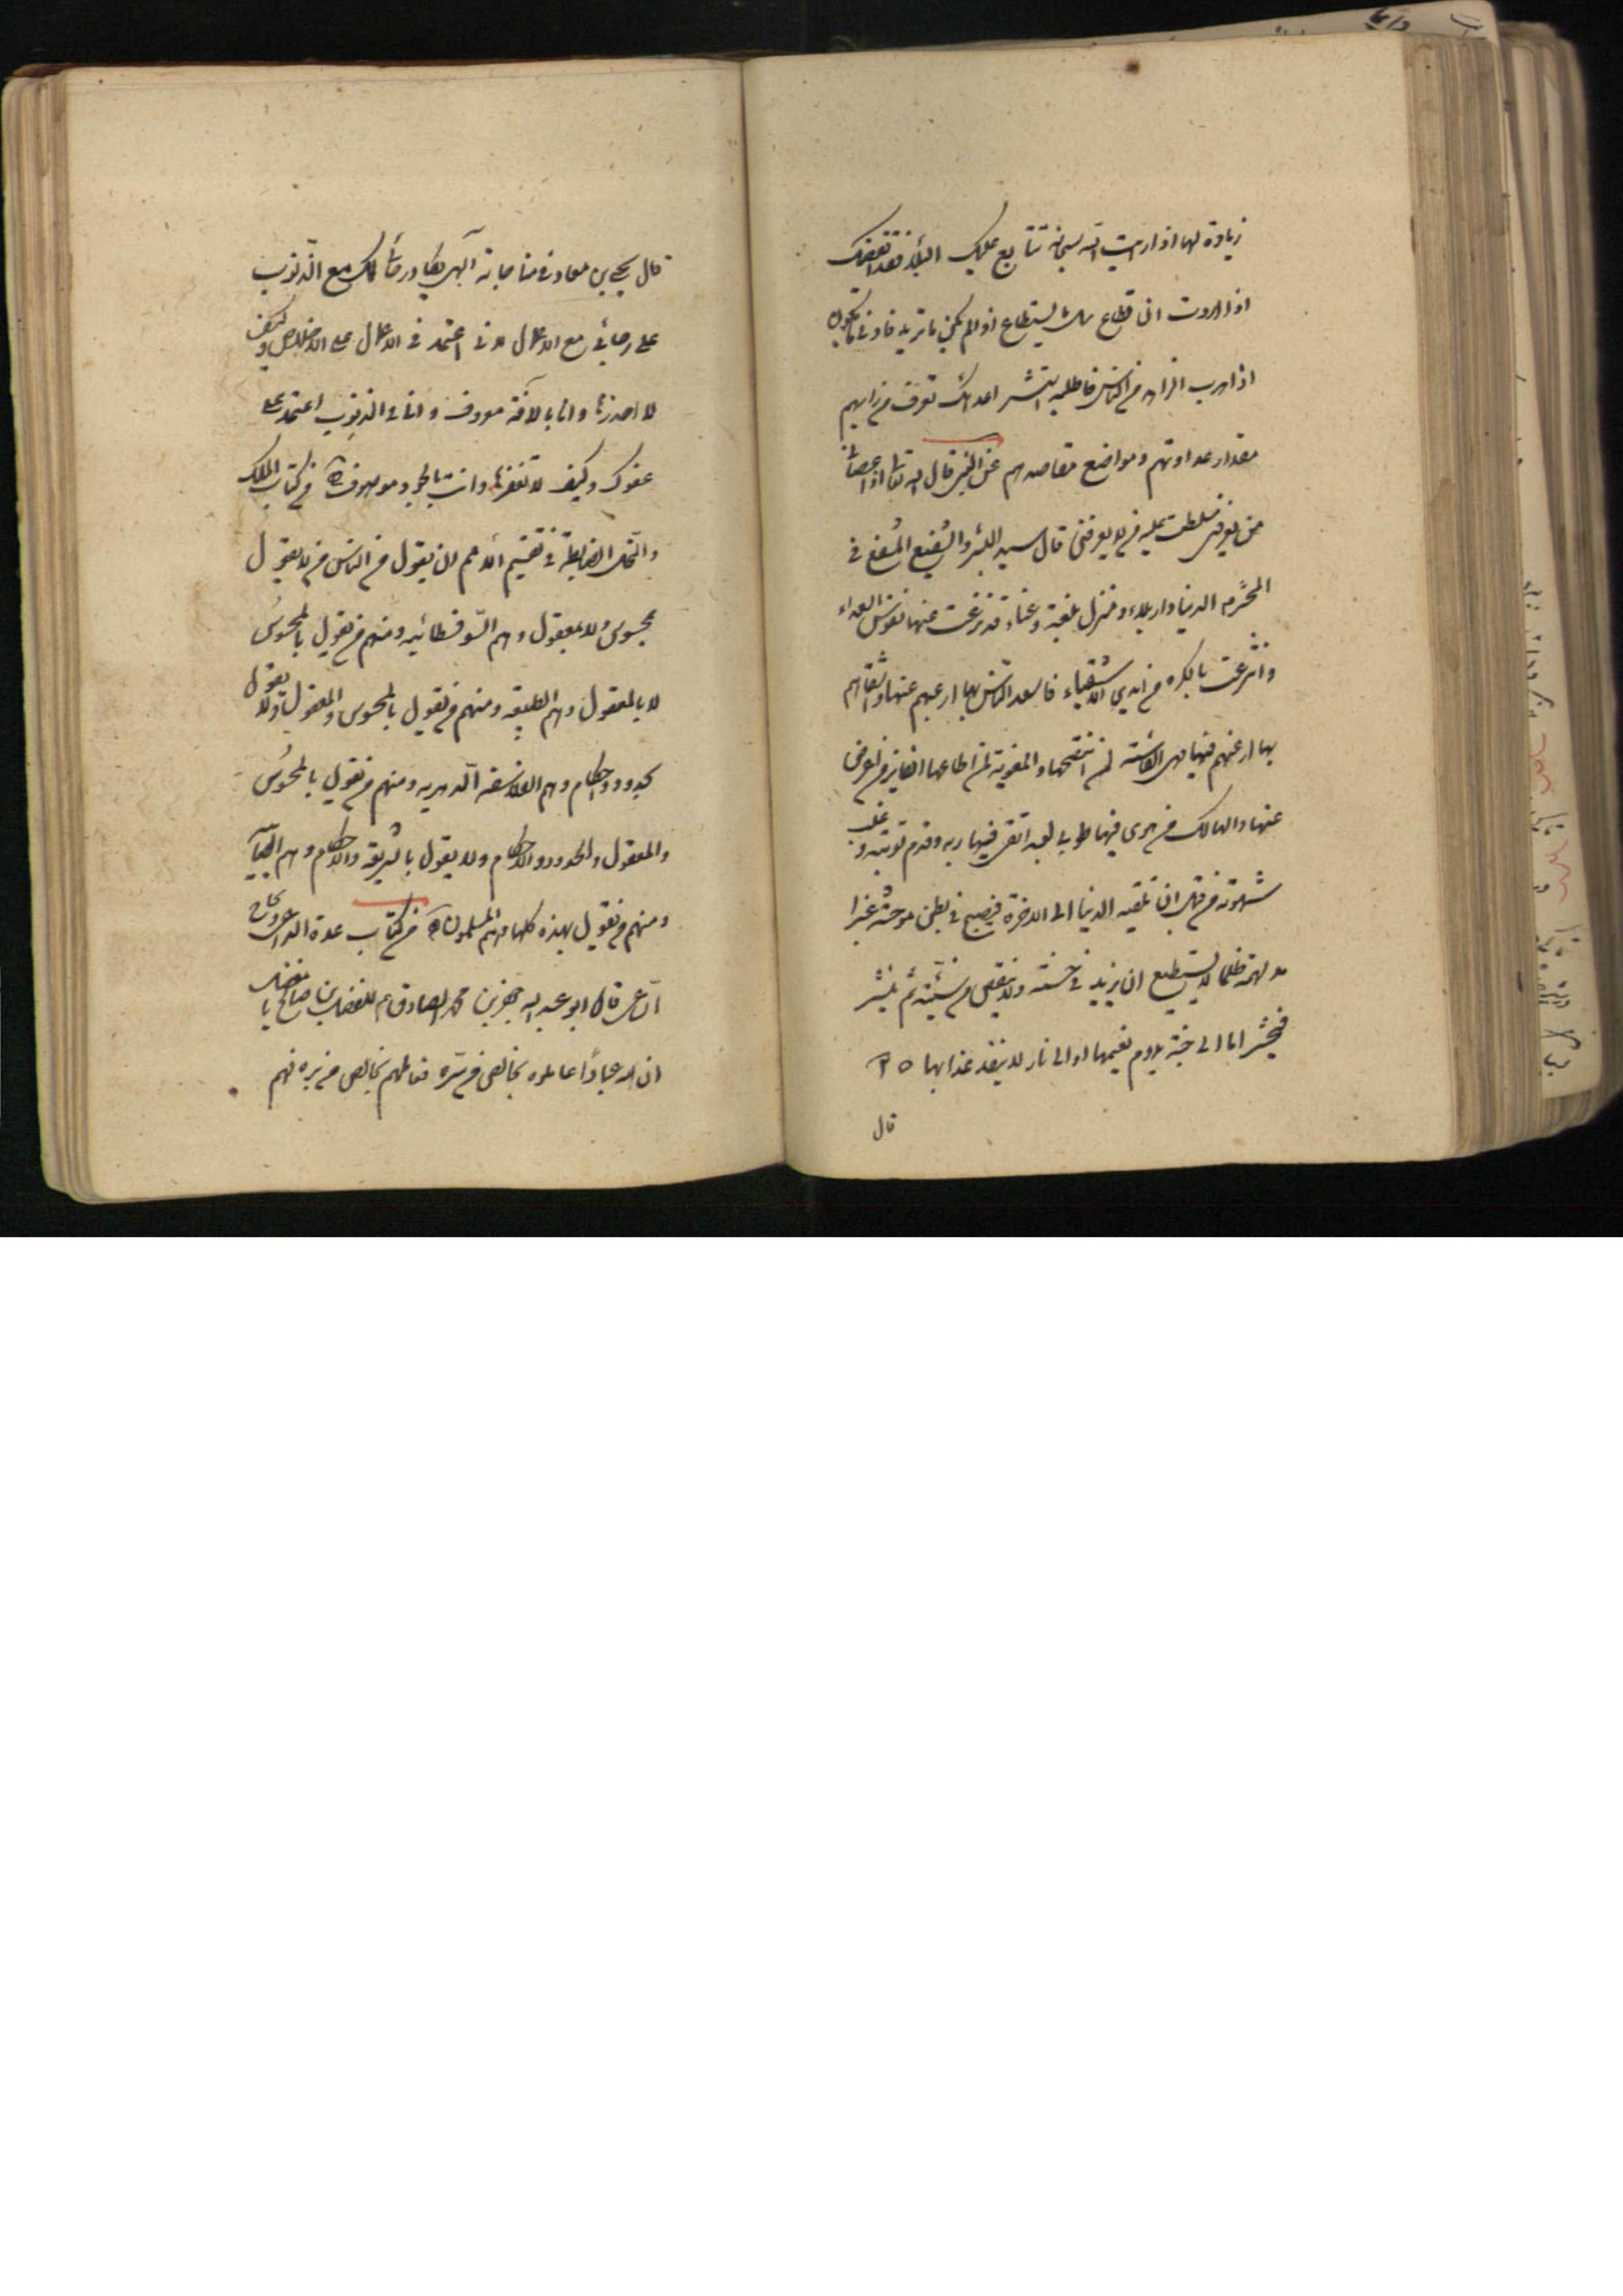 زيادة لها اذا رايت الله سبحانه تتابع عليك البلاء فقد ايقظك
اذا اردت ان تطاع سل ما يستطاع اذا لم يكن ما تريد فارد ما يكون
اذا هرب الزاهد من الناس فاطلبه استشر اعدائك تعرف من رايهم
مقدار عداوتهم ومواضع مقاصدهم عن النبي قال الله تعالى اذا عصاني
من يعرفني سلطت عليه من لا يعرفني قال سيد البشر والشفيع المشفع في
المحشر الدنيا دار بلاء ومنزل بلغة وعناء قد نزعت عنها نفوس السعداء
وانتزعت بالكره من ايدي الاشقياء فاسعد الناس بها ارغبهم عنها واشقاهم
بها ارغبهم فيها فهي الغاشة لمن انتصحها والمغوية لمن اطاعها الفايز من اعرض
عنها والهالك من هوى فيها طوبى لعبد اتقى فيها ربه وقدم توبته وغلب
شهوته من قبل ان تلقيه الدنيا الى الاخرة فيصبح في بطن موحشة غبرا
مدلهمة ظلما لا يستطيع ان يزيد في حسنة ولا ينقص من سيئة ثم ينشر
فيحشر اما الى جنة يدوم نعيمها او الى نار لا ينفد عذابها
قال
قال يحيى بن معاذ في مناجاته الهي يكاد رجائي لك مع الذنوب
على رجائي مع الاعمال لاني اعتمد في الاعمال على الاخلاص وكيف
لا احذرها وانا بالافة معروف وانا في الذنوب اعتمد على
عفوك وكيف لا تغفرها وانت بالجود موصوف من كتاب الملل
والنحل الضابطة في تقسيم الامم ان يقول من الناس من لا يقول
بمحسوس ولا بمعقول وهم السوفسطائيه ومنهم من يقول بالمحسوس
لا بالمعقول وهم الطبيعيه ومنهم من يقول بالمحسوس والمعقول ولا يقول
بحدود واحكام وهم الفلاسفة الدهريه ومنهم من يقول بالمحسوس
والمعقول والحدود والاحكام ولا يقول بالشريعة والاسلام وهم الصابئة
ومنهم من يقول بهذه كلها وهم المسلمون من كتاب عدة الداعي ونجاح
الساعي قال ابو عبد الله جعفر بن محمد الصادق ع للمفضل بن صالح يا مفضل
ان لله عبادا عاملوه بخالص من سره فعاملهم بخالص من بره فهم